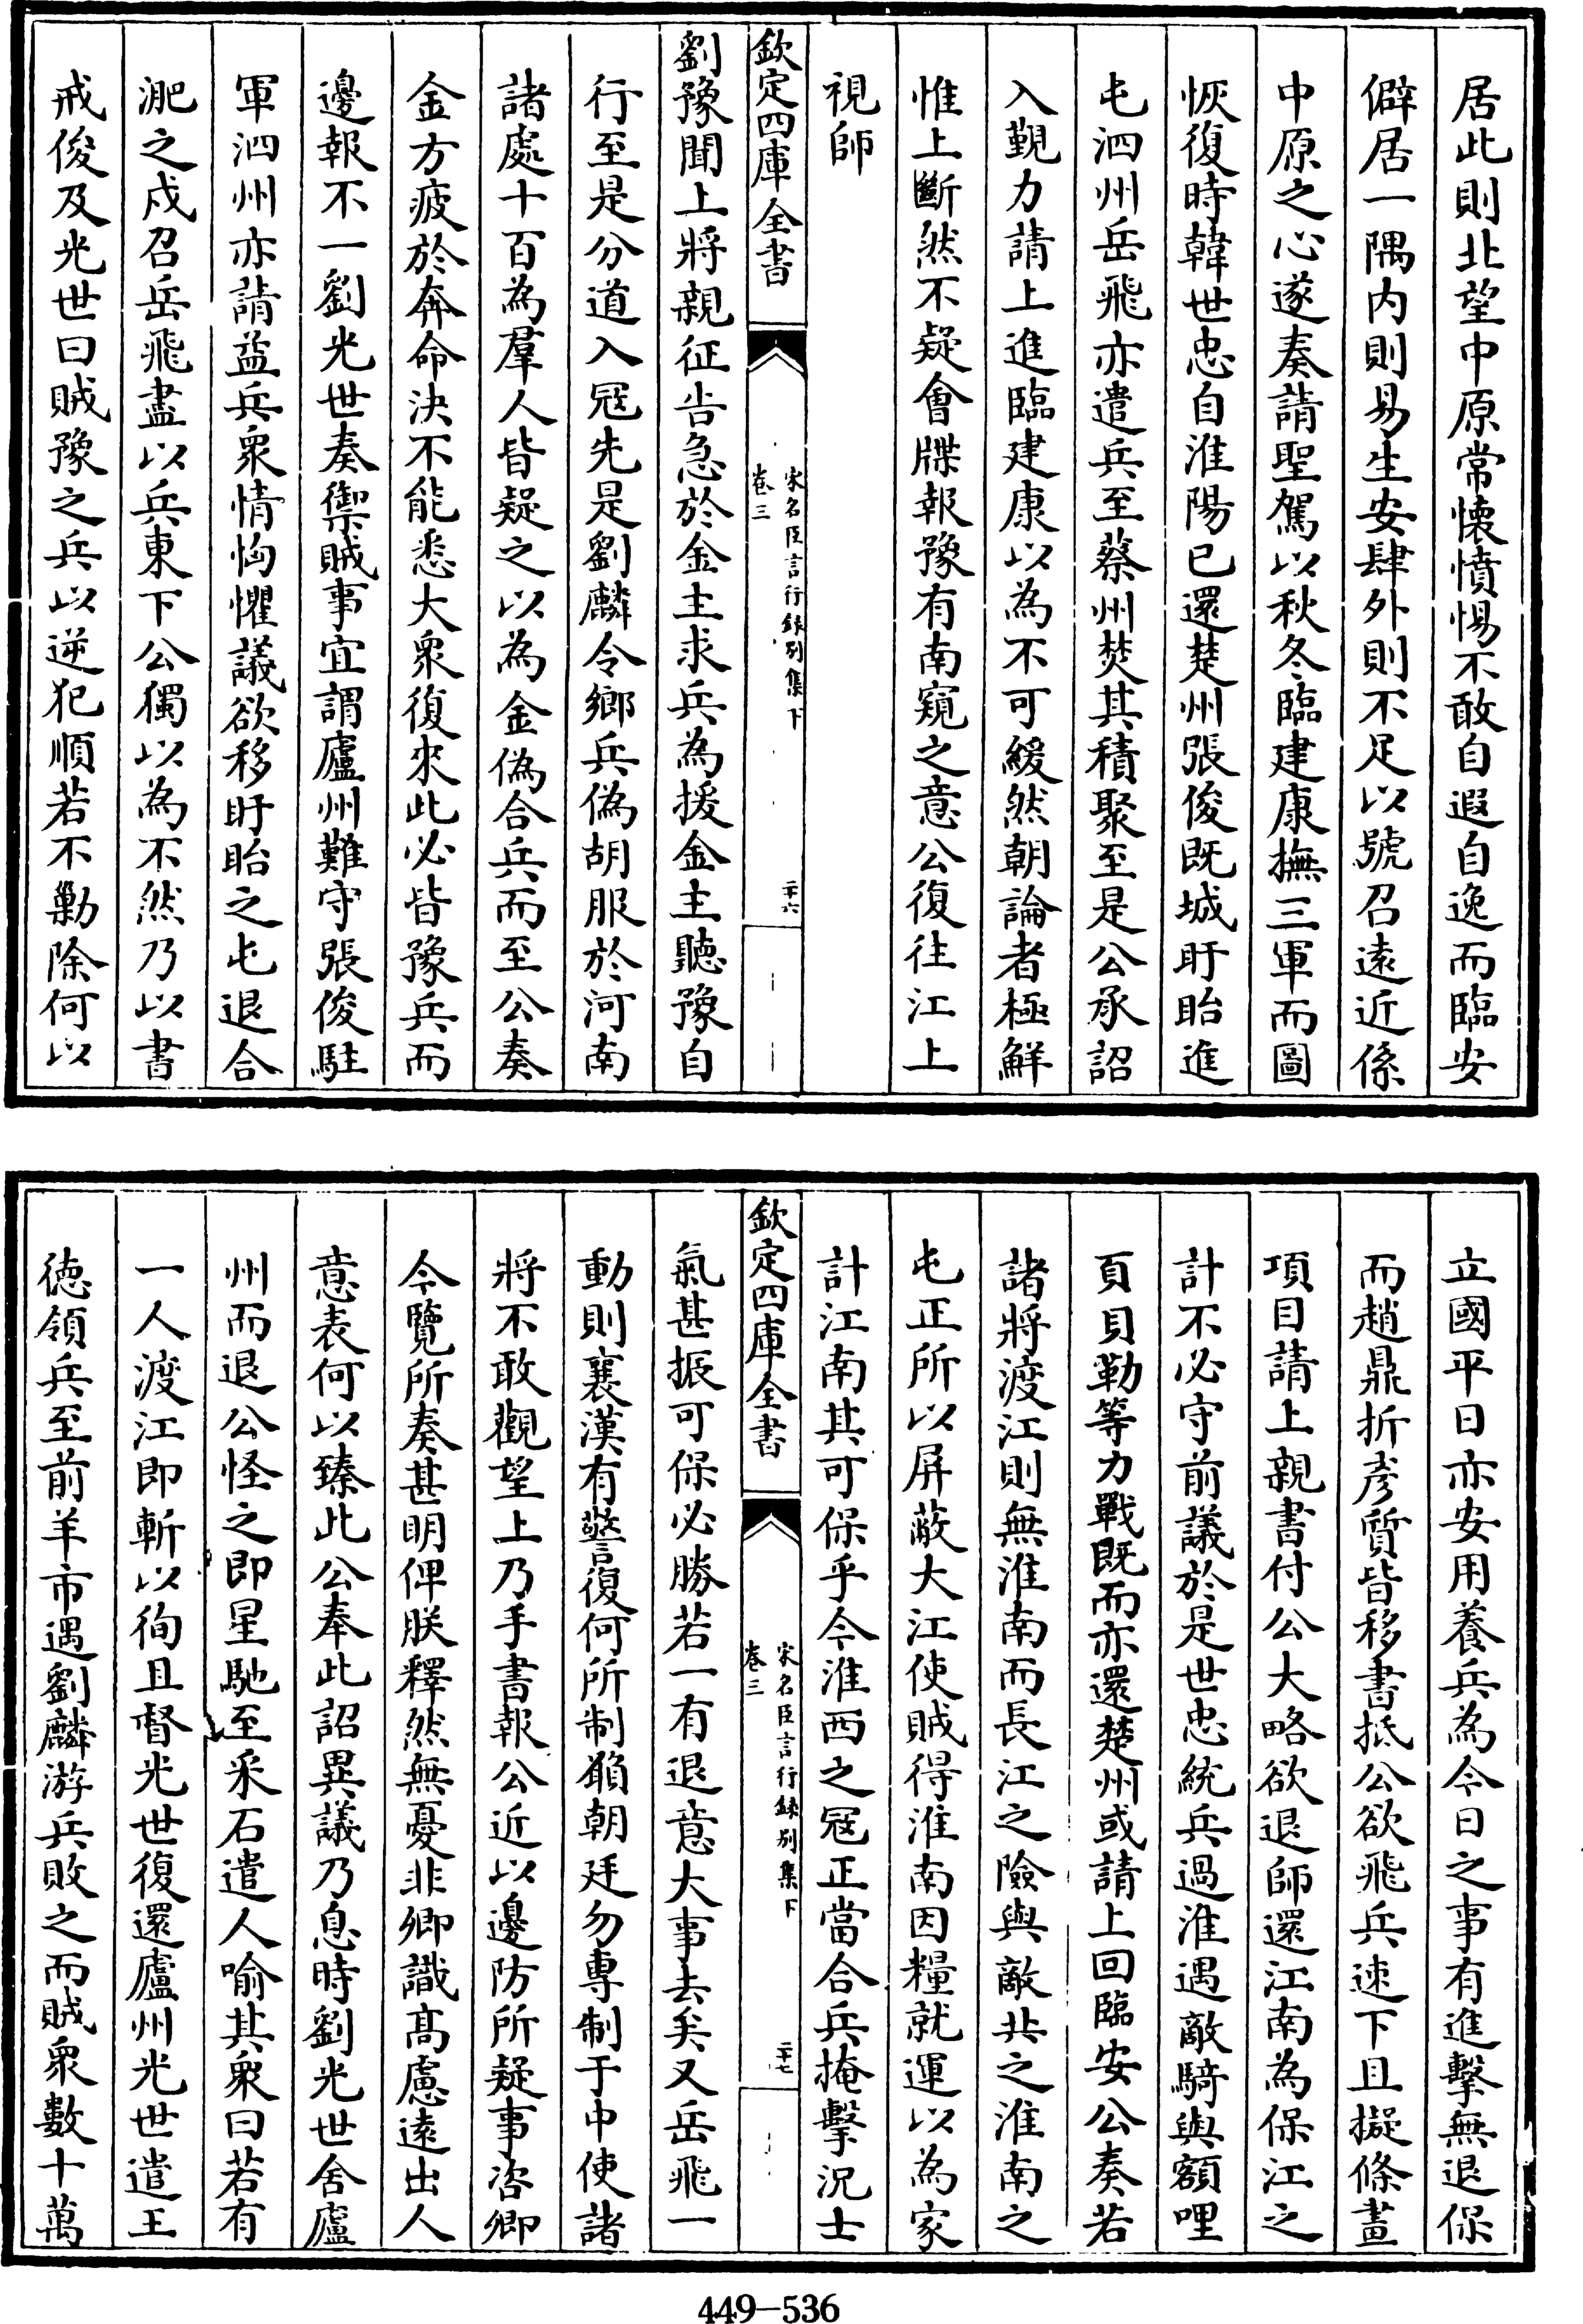 居此則北望中原常懷憤惕不敢自遐自逸而臨安
僻居一隅内則易生安肆外則不足以號召遠近係
中原之心遂奏請聖駕以秋冬臨建康撫三軍而圖
恢復時韓世忠自淮陽已還楚州張俊既城盱眙進
屯泗州岳飛亦遣兵至蔡州焚其積聚至是公承詔
入覲力請上進臨建康以為不可緩然朝論者極鮮
惟上斷然不疑會牒報豫有南窺之意公復往江上
視師
欽定四庫全書
宋名臣言行錄別集下
卷三
二十六
劉豫聞上將親征告急於金主求兵為援金主聽豫自
行至是分道入冦先是劉麟令鄉兵偽胡服於河南
諸處十百為羣人皆疑之以為金偽合兵而至公奏
金方疲於奔命決不能悉大衆復來此必皆豫兵而
邊報不一劉光世奏禦賊事宜謂廬州難守張俊駐
軍泗州亦請益兵衆情恟懼議欲移盱眙之屯退合
淝之戍召岳飛盡以兵東下公獨以為不然乃以書
戒俊及光世曰賊豫之兵以逆犯順若不勦除何以
立國平日亦安用養兵為今日之事有進擊無退保
而趙鼎折彦質皆移書抵公欲飛兵速下且擬條畫
項目請上親書付公大略欲退師還江南為保江之
計不必守前議於是世忠統兵過淮遇敵騎與額哩
頁貝勒等力戰既而亦還楚州或請上回臨安公奏若
諸將渡江則無淮南而長江之險與敵共之淮南之
屯正所以屏蔽大江使賊得淮南因糧就運以為家
計江南其可保乎今淮西之冦正當合兵掩擊況士
欽定四庫全書
宋名臣言行錄別集下
卷三
二十七
氣甚振可保必勝若一有退意大事去矣又岳飛一
動則襄漢有警復何所制願朝廷勿専制于中使諸
將不敢觀望上乃手書報公近以邊防所疑事咨卿
今覽所奏甚明俾朕釋然無憂非卿識髙慮遠出人
意表何以臻此公奉此詔異議乃息時劉光世舍廬
州而退公怪之即星馳至采石遣人喻其衆曰若有
一人渡江即斬以徇且督光世復還廬州光世遣王
徳領兵至前羊市遇劉麟游兵敗之而賊衆數十萬
449-536